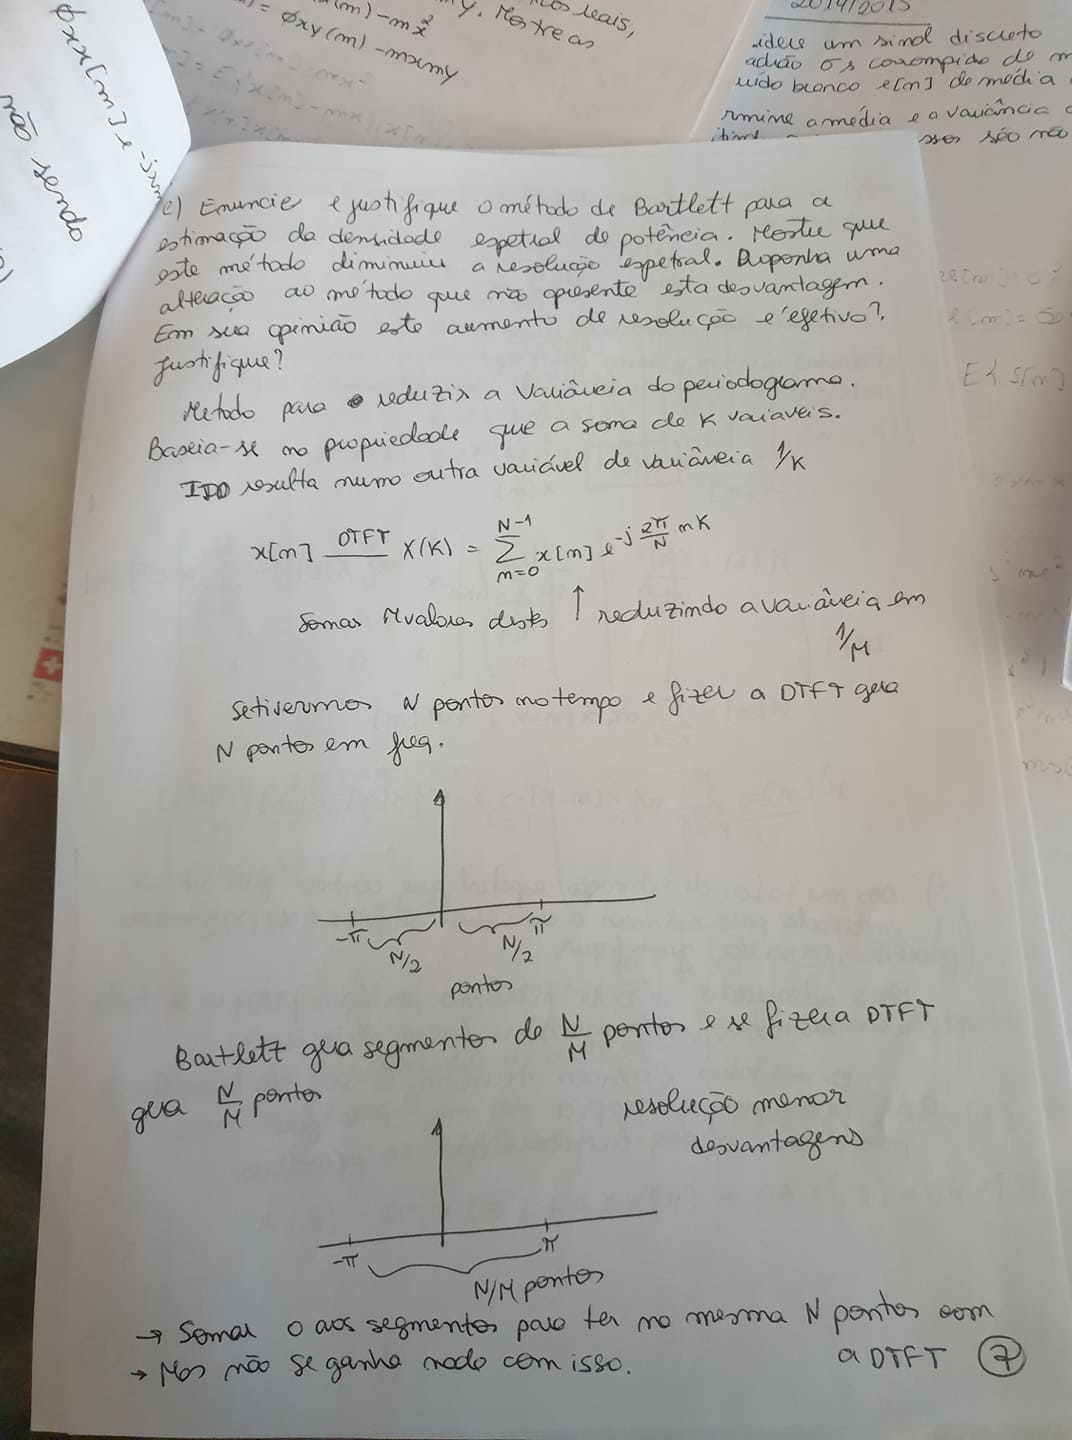 mos reais,
(m) - mx²
y. Mostre as
= ϕxy(m) - mxmy
ϕxx[m] e
não sendo
2014/2015
idere um sinal discreto
ruído branco e[n] de média
rmine a média e a variância
são não
E{s[n]
e) Enuncie e justifique o método de Bartlett para a
estimação da densidade espetral de potência. Mostre que
este método diminuiu a resolução espetral. Proponha uma
alteração ao método que não apresente esta desvantagem.
Em sua opinião este aumento de resolução e' efetivo?.
Justifique?
Metodo para reduzir a variância do periodograma.
Baseia-se na propriedade que a soma de K variaveis.
resulta numa outra variável de variância 1/K
x[n] DTFT X(K) = Σ_{n=0}^{N-1} x[n] e^{-j 2π/N nK}
Somar M valores destes ↑ reduzindo a variância em
1/M
Se tivermos N pontos no tempo e fizer a DTFT gera
N pontos em freq.
-π N/2 N/2 π
pontos
Bartlett gera segmentos de N/M pontos e se fizer a DTFT
gera N/M pontos
resolução menor
desvantagens
-π π
N/M pontos
→ Somar 0 aos segmentos para ter na mesma N pontos com
a DTFT
→ Mas não se ganha nada com isso.
7